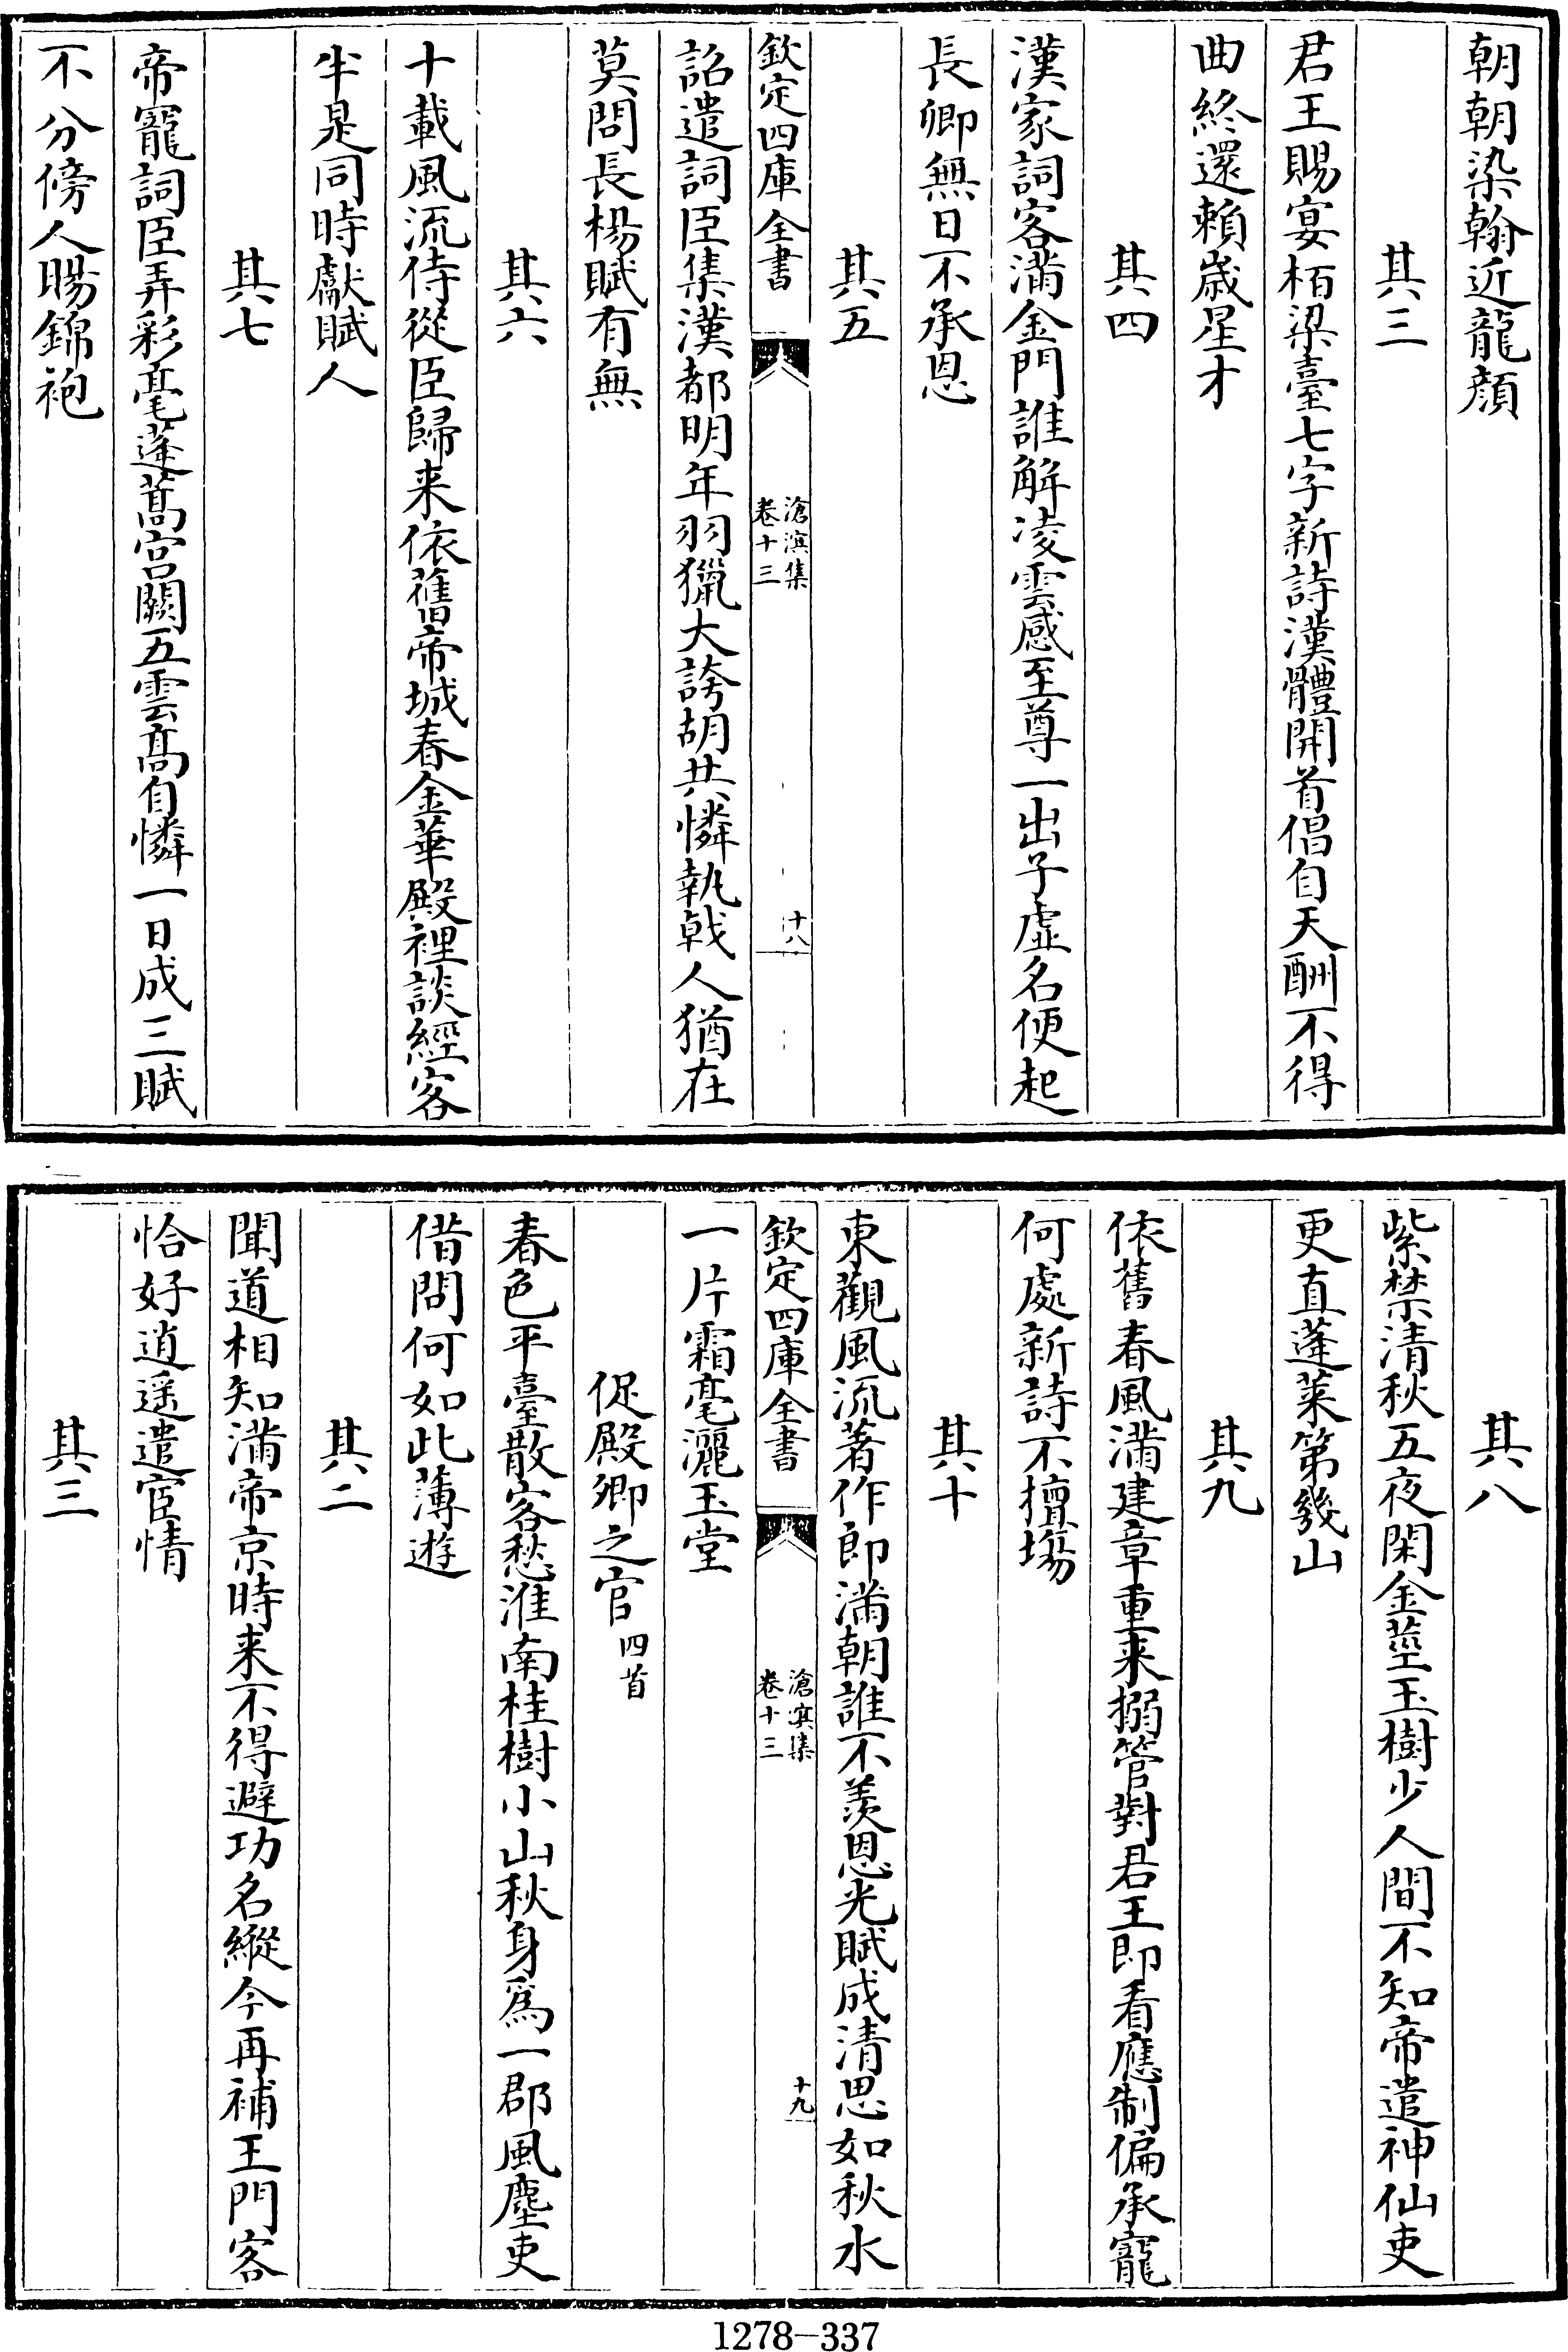 朝朝染翰近龍顔
其三
君王賜宴栢梁臺七字新詩漢體開首倡自天酬不得
曲終還賴嵗星才
其四
漢家詞客滿金門誰解凌雲感至尊一出子虛名便起
長卿無日不承恩
其五
欽定四庫全書
滄溟集
卷十三
十八
詔遣詞臣集漢都明年羽獵大誇胡共憐執戟人猶在
莫問長楊賦有無
其六
十載風流侍從臣歸来依舊帝城春金華殿裡談經客
半是同時獻賦人
其七
帝寵詞臣弄彩毫蓬萵宫闕五雲髙自憐一日成三賦
不分傍人賜錦袍
其八
紫禁清秋五夜閑金莖玉樹少人間不知帝遣神仙吏
更直蓬萊第幾山
其九
依舊春風滿建章重来搦管對君王即看應制偏承寵
何處新詩不擅塲
其十
東觀風流著作郎滿朝誰不羨恩光賦成清思如秋水
欽定四庫全書
滄溟集
卷十三
十九
一片霜毫灑玉堂
促殿卿之官四首
春色平臺散客愁淮南桂樹小山秋身為一郡風塵吏
借問何如此薄遊
其二
聞道相知滿帝京時来不得避功名縱今再補王門客
恰好逍遥遣宦情
其三
1278-337